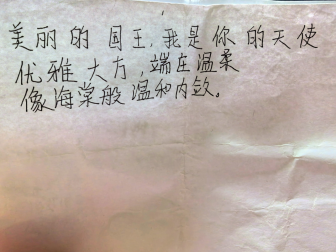 美丽的国王,我是你的天使
优雅大方,端庄温柔
像海棠般温和内敛。